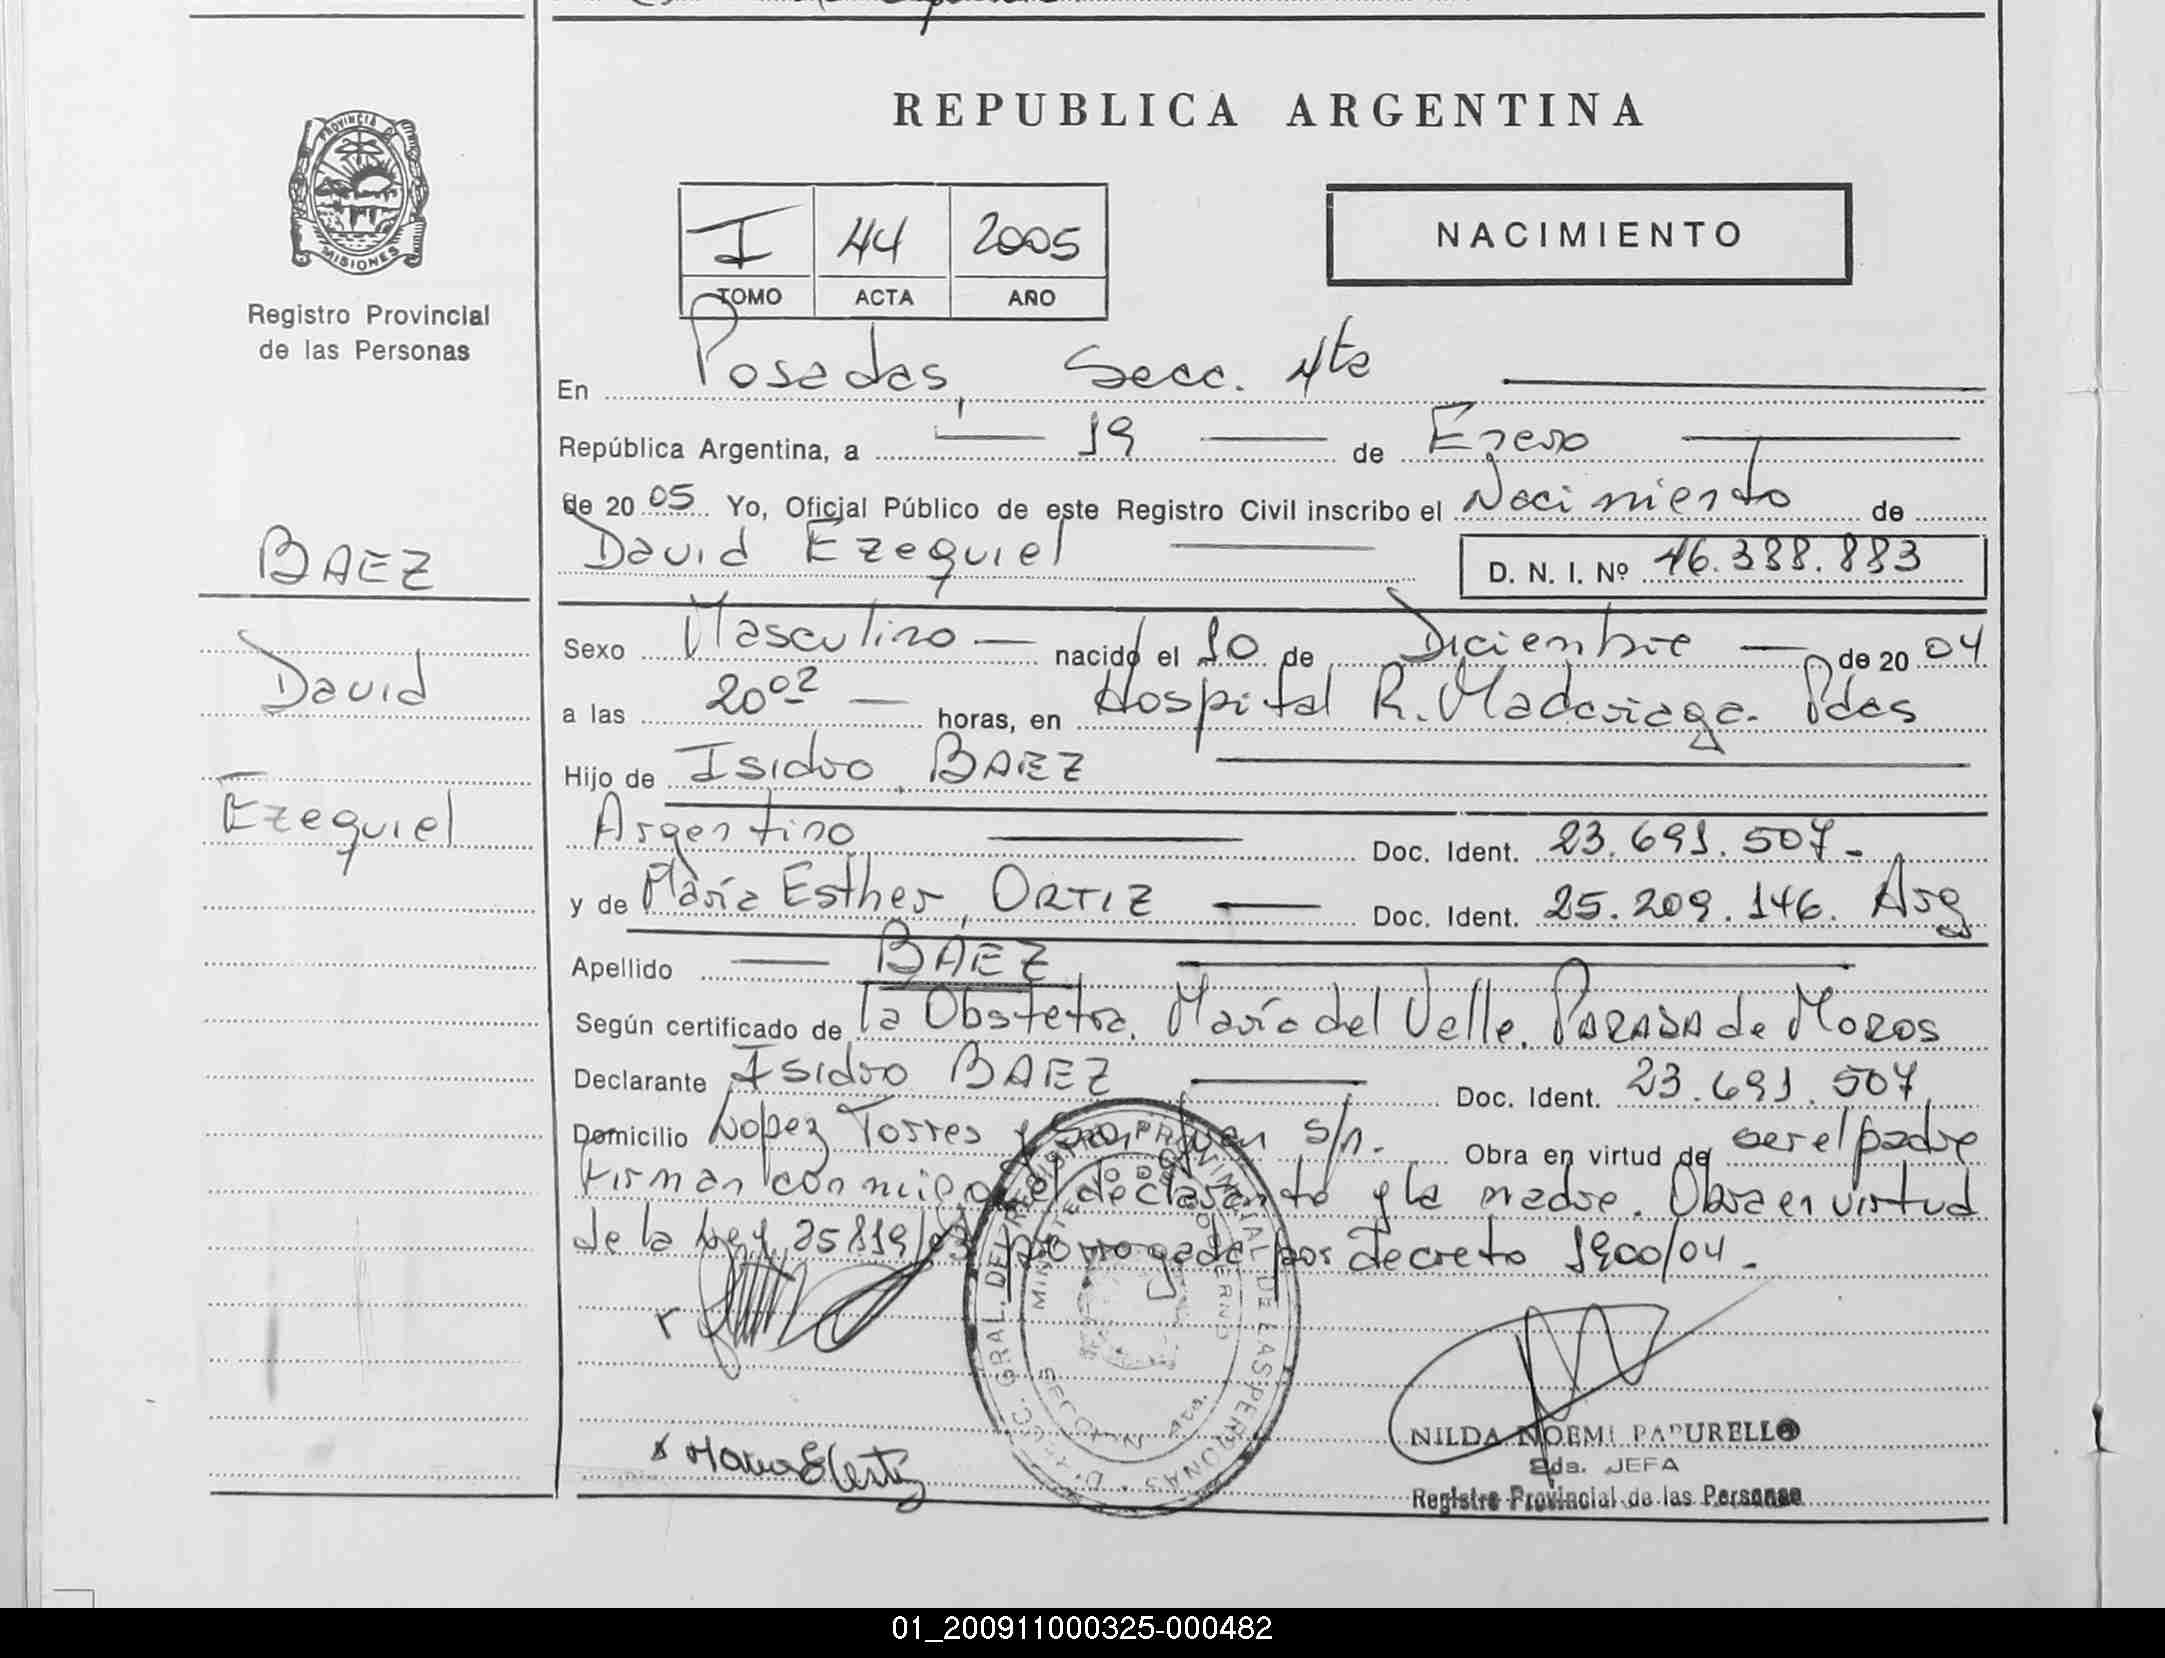 REPUBLICA ARGENTINA
PROVINCIA DE
MISIONES
Registro Provincial
de las Personas
I 44 2005
TOMO ACTA AÑO
NACIMIENTO
En Posadas, Secc. 4ta
República Argentina, a 19 de Enero
de 20 05 Yo, Oficial Público de este Registro Civil inscribo el Nacimiento de
David Ezequiel D. N. I. Nº 46.388.883
BAEZ
David
Ezequiel
Sexo Masculino nacido el 10 de Diciembre de 20 04
a las 20 02 horas, en Hospital R. Madariaga. Pdas
Hijo de Isidro BAEZ
Argentino Doc. Ident. 23.691.507.-
y de María Esther, ORTIZ Doc. Ident. 25.209.146. Arg
Apellido BAEZ
Según certificado de la Obstetra, María del Valle. PARADA de MOROS
Declarante Isidro BAEZ Doc. Ident. 23.691.507
Domicilio Lopez Torres y San Juan s/n. Obra en virtud de ser el padre
Firman conmigo el declarante y la madre. Obra en virtud
de la Ley 25819/03 prorrogada por decreto 1900/04.-
GRAL. DEL REGISTRO PROVINCIAL DE LAS PERSONAS
MINISTERIO DE GOBIERNO
NILDA NOEMI PAPURELLO
2da. JEFA
Registro Provincial de las Personas
01_200911000325-000482